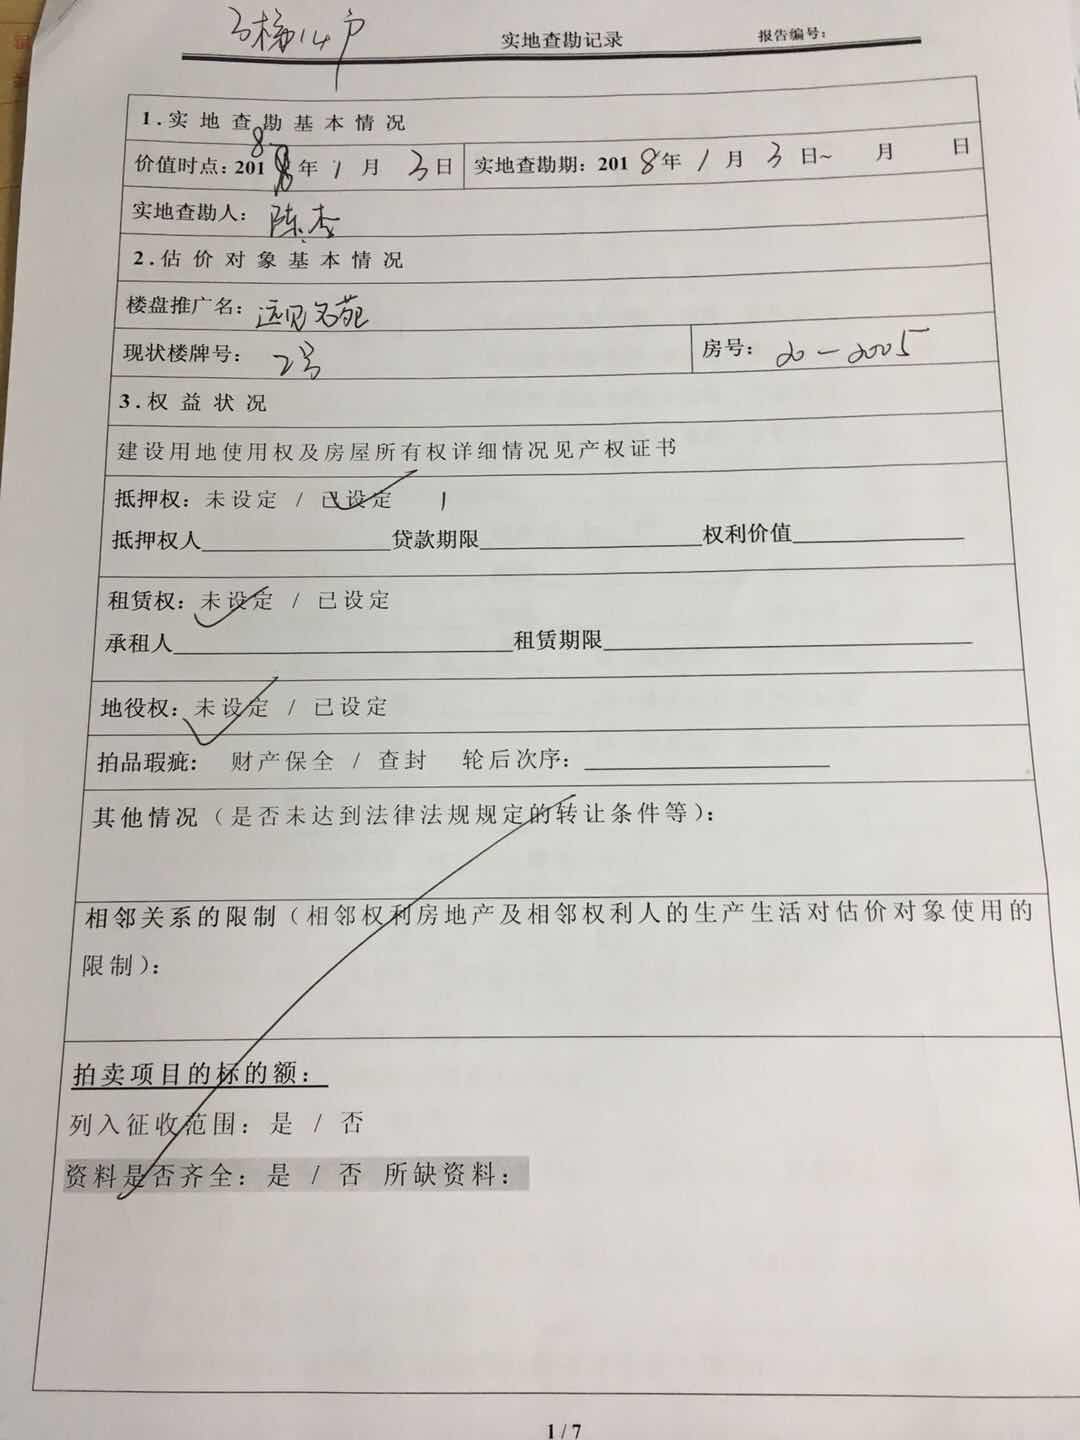 3梯14户
实地查勘记录 报告编号:
1.实地查勘基本情况
价值时点: 2018年1月3日 实地查勘期: 2018年1月3日~ 月 日
实地查勘人: 陈杰
2.估价对象基本情况
楼盘推广名: 远见名苑
现状楼牌号: 2号 房号: 20-2005
3.权益状况
建设用地使用权及房屋所有权详细情况见产权证书
抵押权: 未设定 / 已设定
抵押权人 贷款期限 权利价值
租赁权: 未设定 / 已设定
承租人 租赁期限
地役权: 未设定 / 已设定
拍品瑕疵: 财产保全 / 查封 轮后次序:
其他情况(是否未达到法律法规规定的转让条件等):
相邻关系的限制(相邻权利房地产及相邻权利人的生产生活对估价对象使用的
限制):
拍卖项目的标的额:
列入征收范围: 是 / 否
资料是否齐全: 是 / 否 所缺资料:
1 / 7